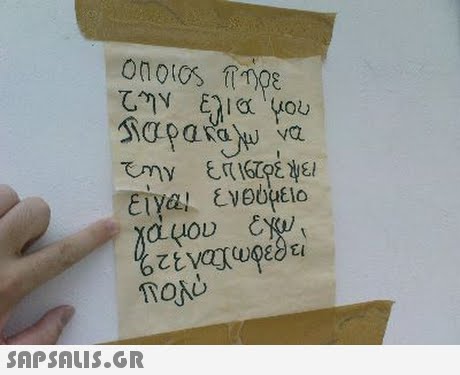 οποιος πήρε
την ελια μου
παρακαλω να
την επιστρέψει
είναι ενθύμειο
γάμου εχω
στεναχωρεθεί
πολύ
SAPSALIS.GR